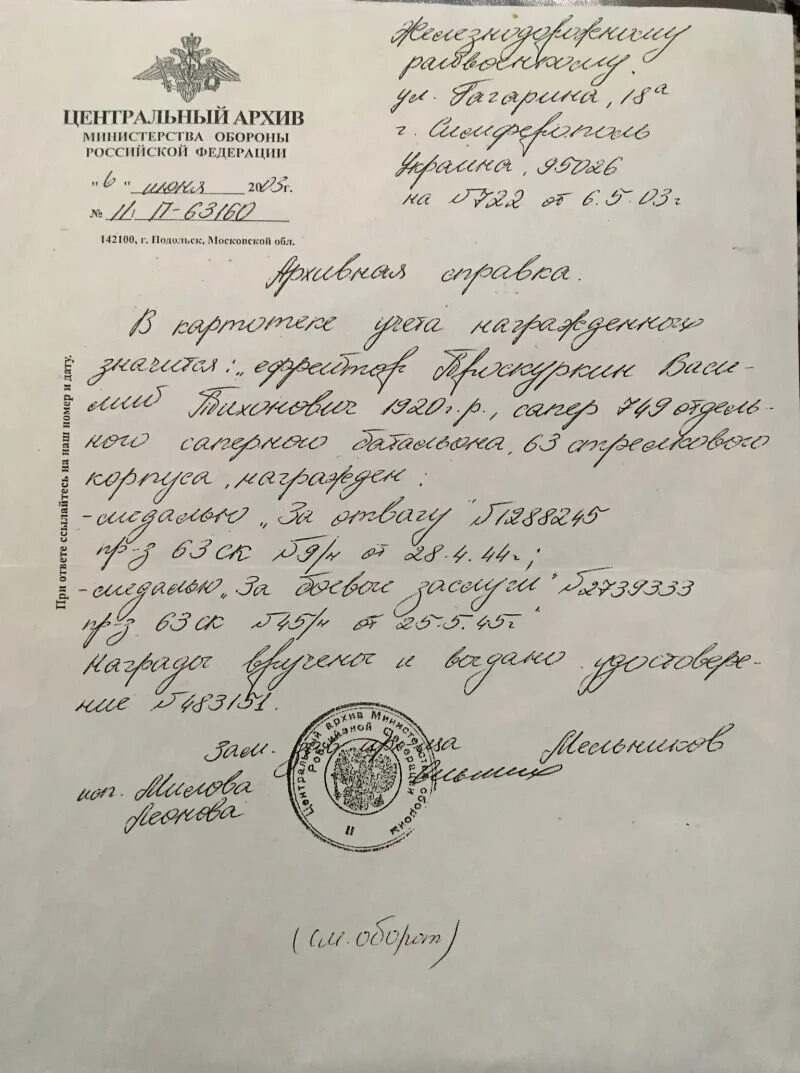 ЦЕНТРАЛЬНЫЙ АРХИВ
МИНИСТЕРСТВА ОБОРОНЫ
РОССИЙСКОЙ ФЕДЕРАЦИИ
"6" июня 2003г.
№ 11 П-63160
142100, г. Подольск, Московской обл.
Железнодорожному
райвоенкому.
ул. Гагарина, 18а
г. Симферополь
Украина, 95026
на №722 от 6.5.03г
Архивная справка.
В картотеке учета награжденного
значится: „ефрейтор Проскуркин Васи-
лий Тихонович 1920г.р., сапер 749 отдель-
ного саперного батальона, 63 стрелкового
корпуса, награжден:
-медалью „За отвагу" №1288245
пр-з 63 ск №9/н от 28.4.44г;
-медалью „За боевые заслуги" №2739333
пр-з 63 ск №45/н от 25.5.45г"
Награды вручены и выдано удостовере-
ние №483151.
Зам. Мельников
исп. Милова
Леонова
Центральный архив Министерства обороны
Российской Федерации
11
(см. оборот)
При ответе ссылайтесь на наш номер и дату.